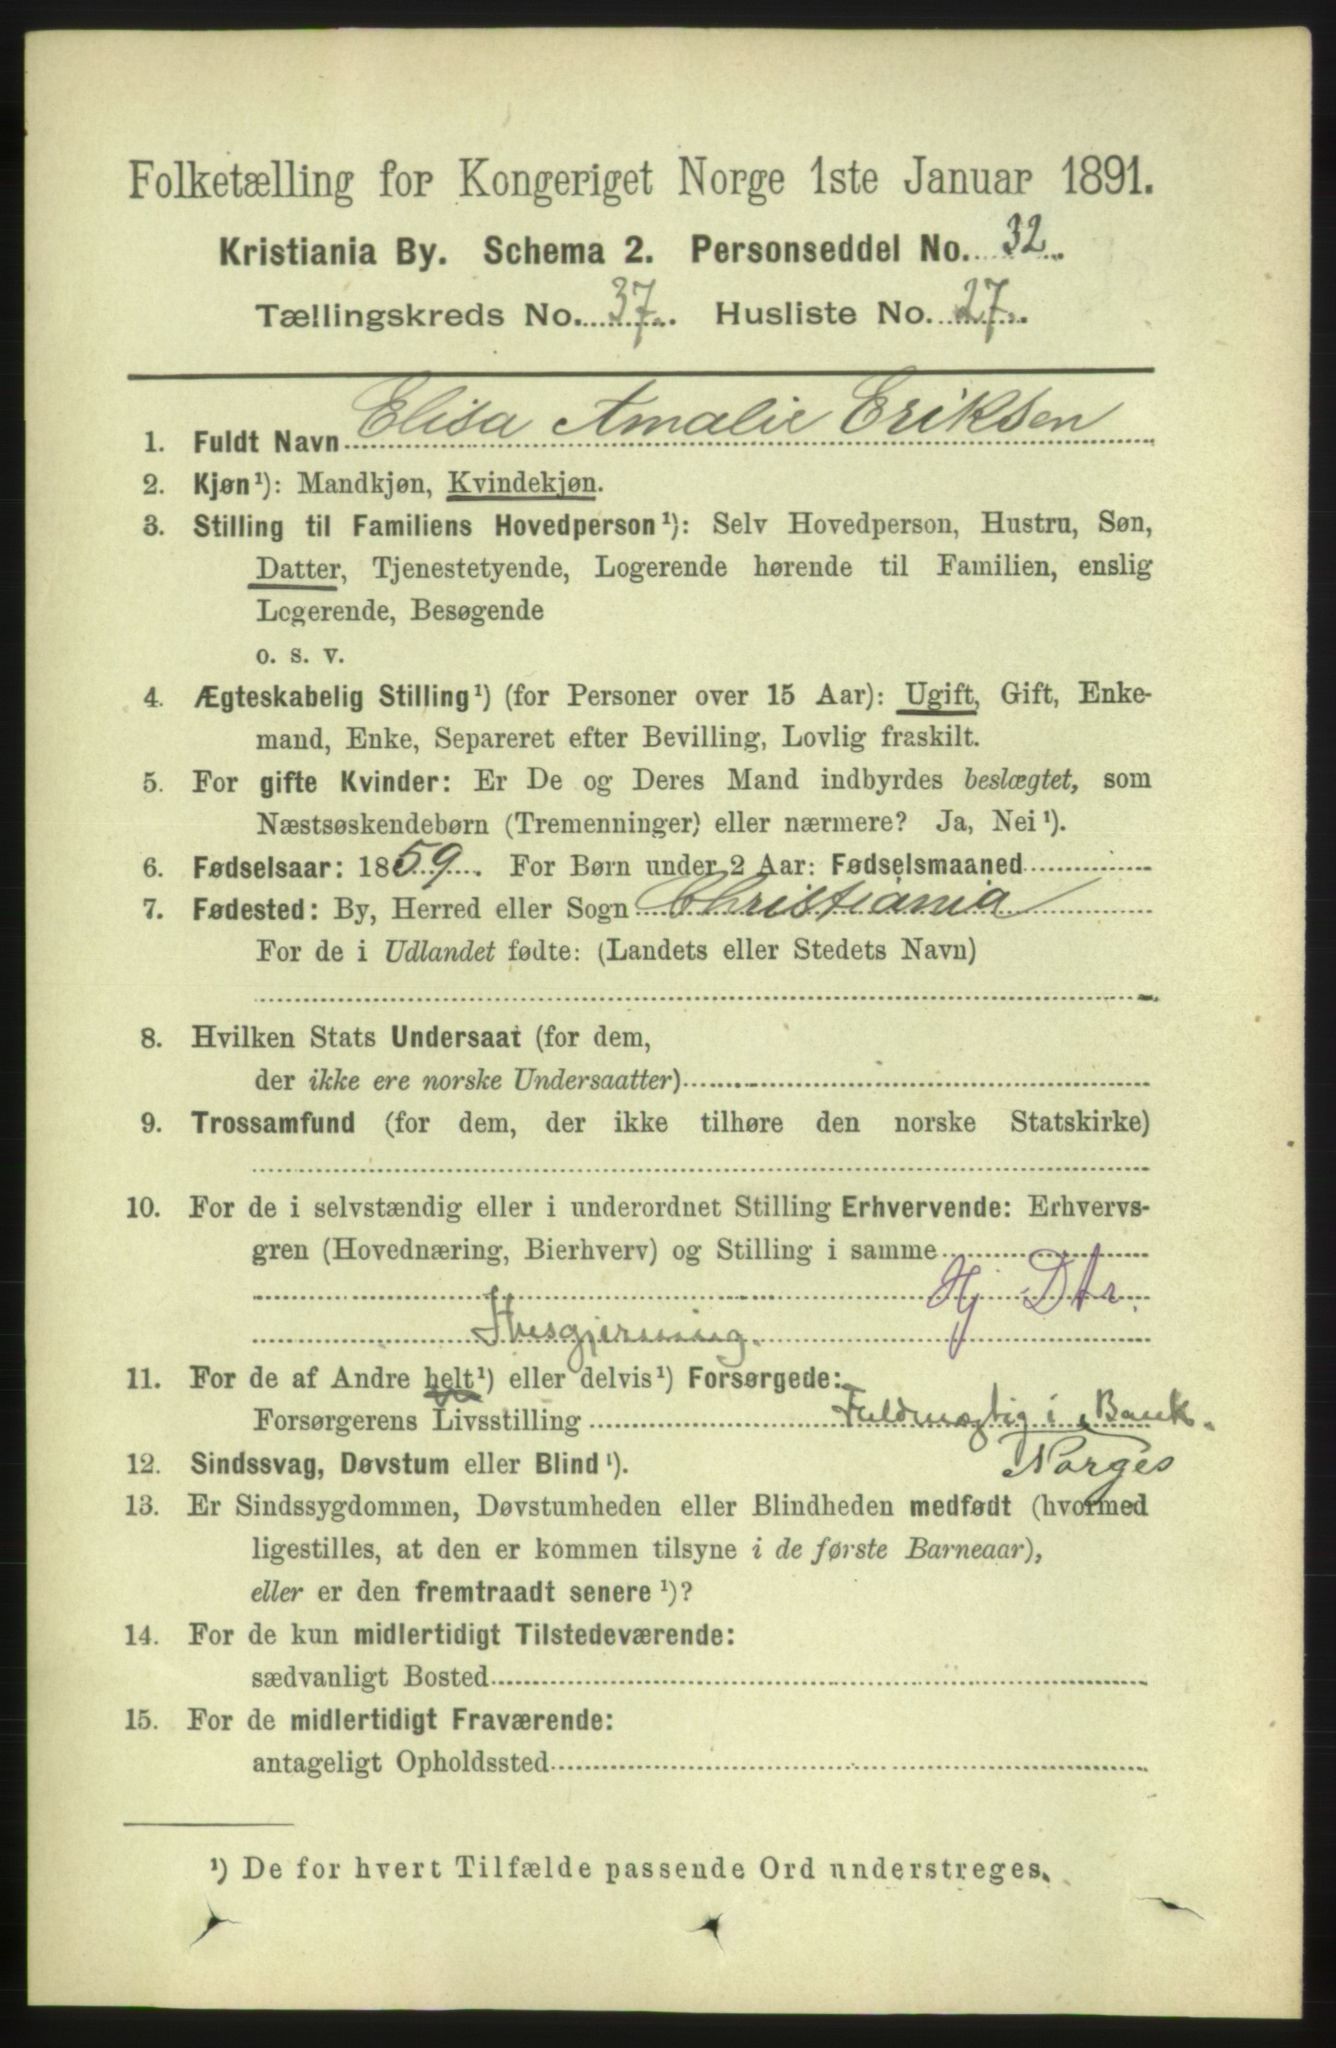 Folketælling for Kongeriget Norge 1ste Januar 1891.
Kristiania By. Schema 2. Personseddel No. 32.
Tællingskreds No. 37. Husliste No. 27.
1. Fuldt Navn Elisa Amalie Eriksen
2. Kjøn¹): Mandkjøn, Kvindekjøn.
3. Stilling til Familiens Hovedperson¹): Selv Hovedperson, Hustru, Søn,
Datter, Tjenestetyende, Logerende hørende til Familien, enslig
Logerende, Besøgende
o. s. v.
4. Ægteskabelig Stilling¹) (for Personer over 15 Aar): Ugift, Gift, Enke-
mand, Enke, Separeret efter Bevilling, Lovlig fraskilt.
5. For gifte Kvinder: Er De og Deres Mand indbyrdes beslægtet, som
Næstsøskendebørn (Tremenninger) eller nærmere? Ja, Nei¹).
6. Fødselsaar: 1859. For Børn under 2 Aar: Fødselsmaaned
7. Fødested: By, Herred eller Sogn Christiania
For de i Udlandet fødte: (Landets eller Stedets Navn)
8. Hvilken Stats Undersaat (for dem,
der ikke ere norske Undersaatter)
9. Trossamfund (for dem, der ikke tilhøre den norske Statskirke)
10. For de i selvstændig eller i underordnet Stilling Erhvervende: Erhvervs-
gren (Hovednæring, Bierhverv) og Stilling i samme
Hj Dtr.
Husgjerning.
11. For de af Andre helt¹) eller delvis¹) Forsørgede:
Forsørgerens Livsstilling Fuldmægtig i Bank.
Norges
12. Sindssvag, Døvstum eller Blind¹).
13. Er Sindssygdommen, Døvstumheden eller Blindheden medfødt (hvormed
ligestilles, at den er kommen tilsyne i de første Barneaar),
eller er den fremtraadt senere¹)?
14. For de kun midlertidigt Tilstedeværende:
sædvanligt Bosted
15. For de midlertidigt Fraværende:
antageligt Opholdssted
¹) De for hvert Tilfælde passende Ord understreges.